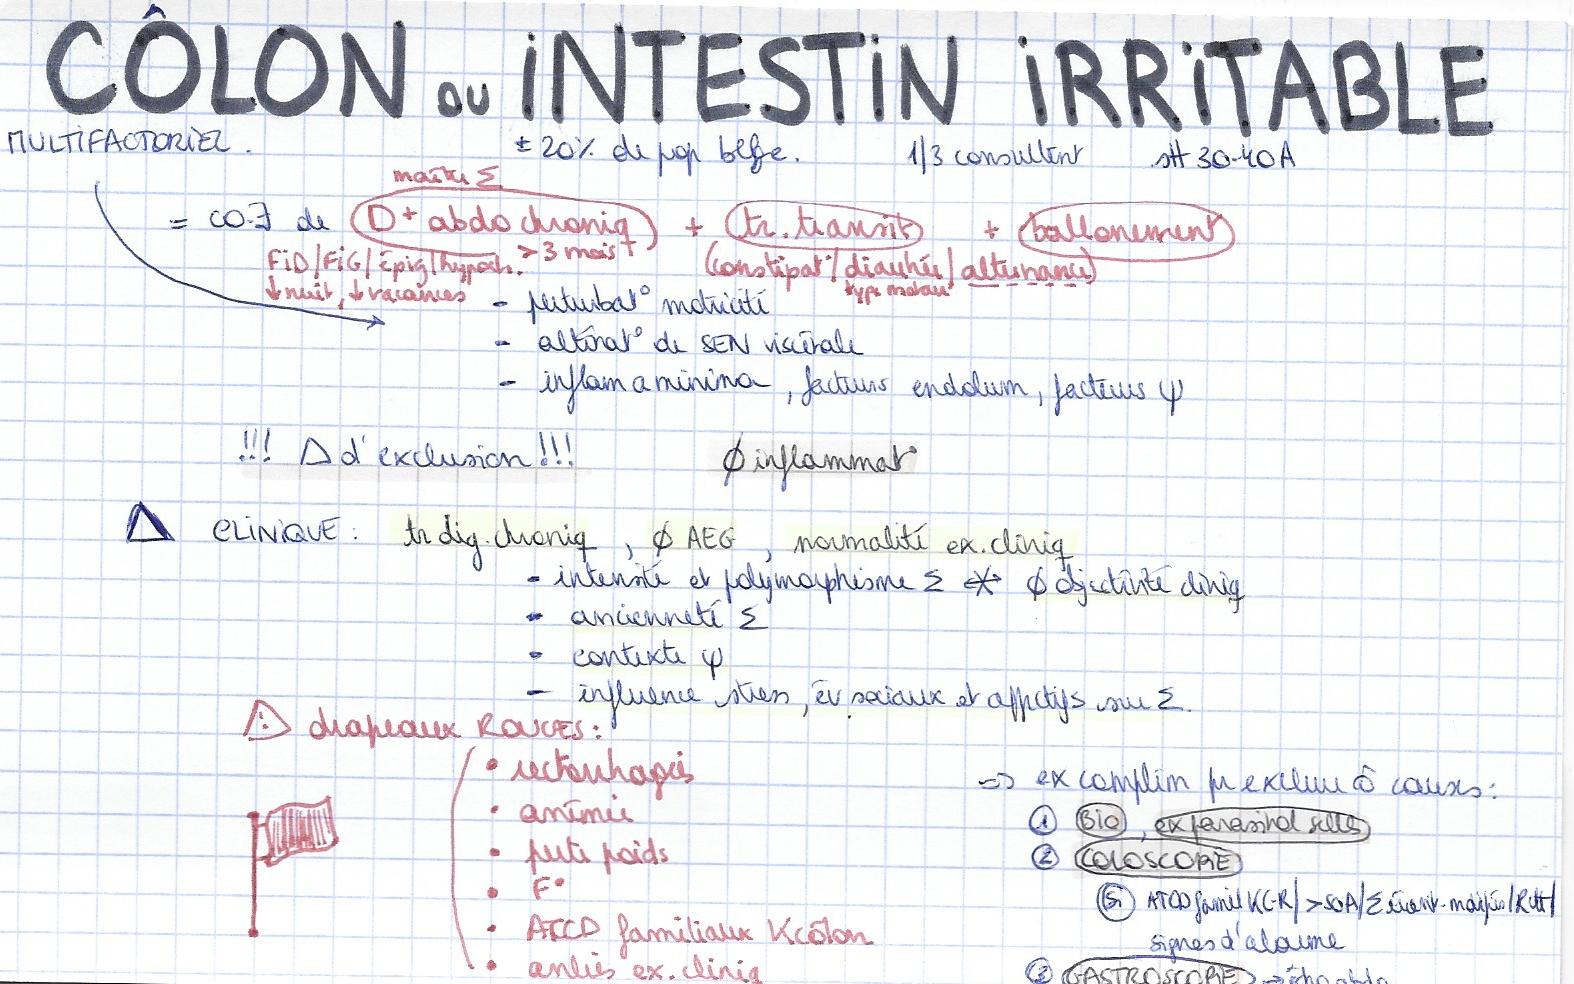 CÔLON OU INTESTIN IRRITABLE
MULTIFACTORIEL. ± 20% de pop belge. 1/3 consultent st 30-40A
maître Σ
= co-∃ de D+ abdo chroniq + tr. transit + ballonement
> 3 mois
FID/FIG/épig/hypoch. (constipat°/diarrhée/alternance)
↓ nuit, ↓ vacances type moteur
- perturbat° motricité
- altérat° de SEN viscérale
- inflam a minima, facteurs endolum, facteurs ψ
!!! Δ d'exclusion !!! ∅ inflammat°
Δ CLINIQUE: tr dig. chroniq, ∅ AEG, normalité ex. cliniq
- intensité et polymorphisme Σ ∅ objectivité cliniq
- ancienneté Σ
- contexte ψ
- influence stress, év sociaux et affectifs sur Σ.
⚠ drapeaux ROUGES:
• rectorrhagies
• anémie
• perte poids
• F°
• ATCD familiaux K côlon
• anlies ex. cliniq
=> ex complém pr exclure ô causes:
① Bio, ex parasitol selles
② COLOSCOPIE
Si ATCD famil KCR/>50A/Σ récent-modifiés/RHH/
signes d'alarme
③ GASTROSCOPIE → écho abdo